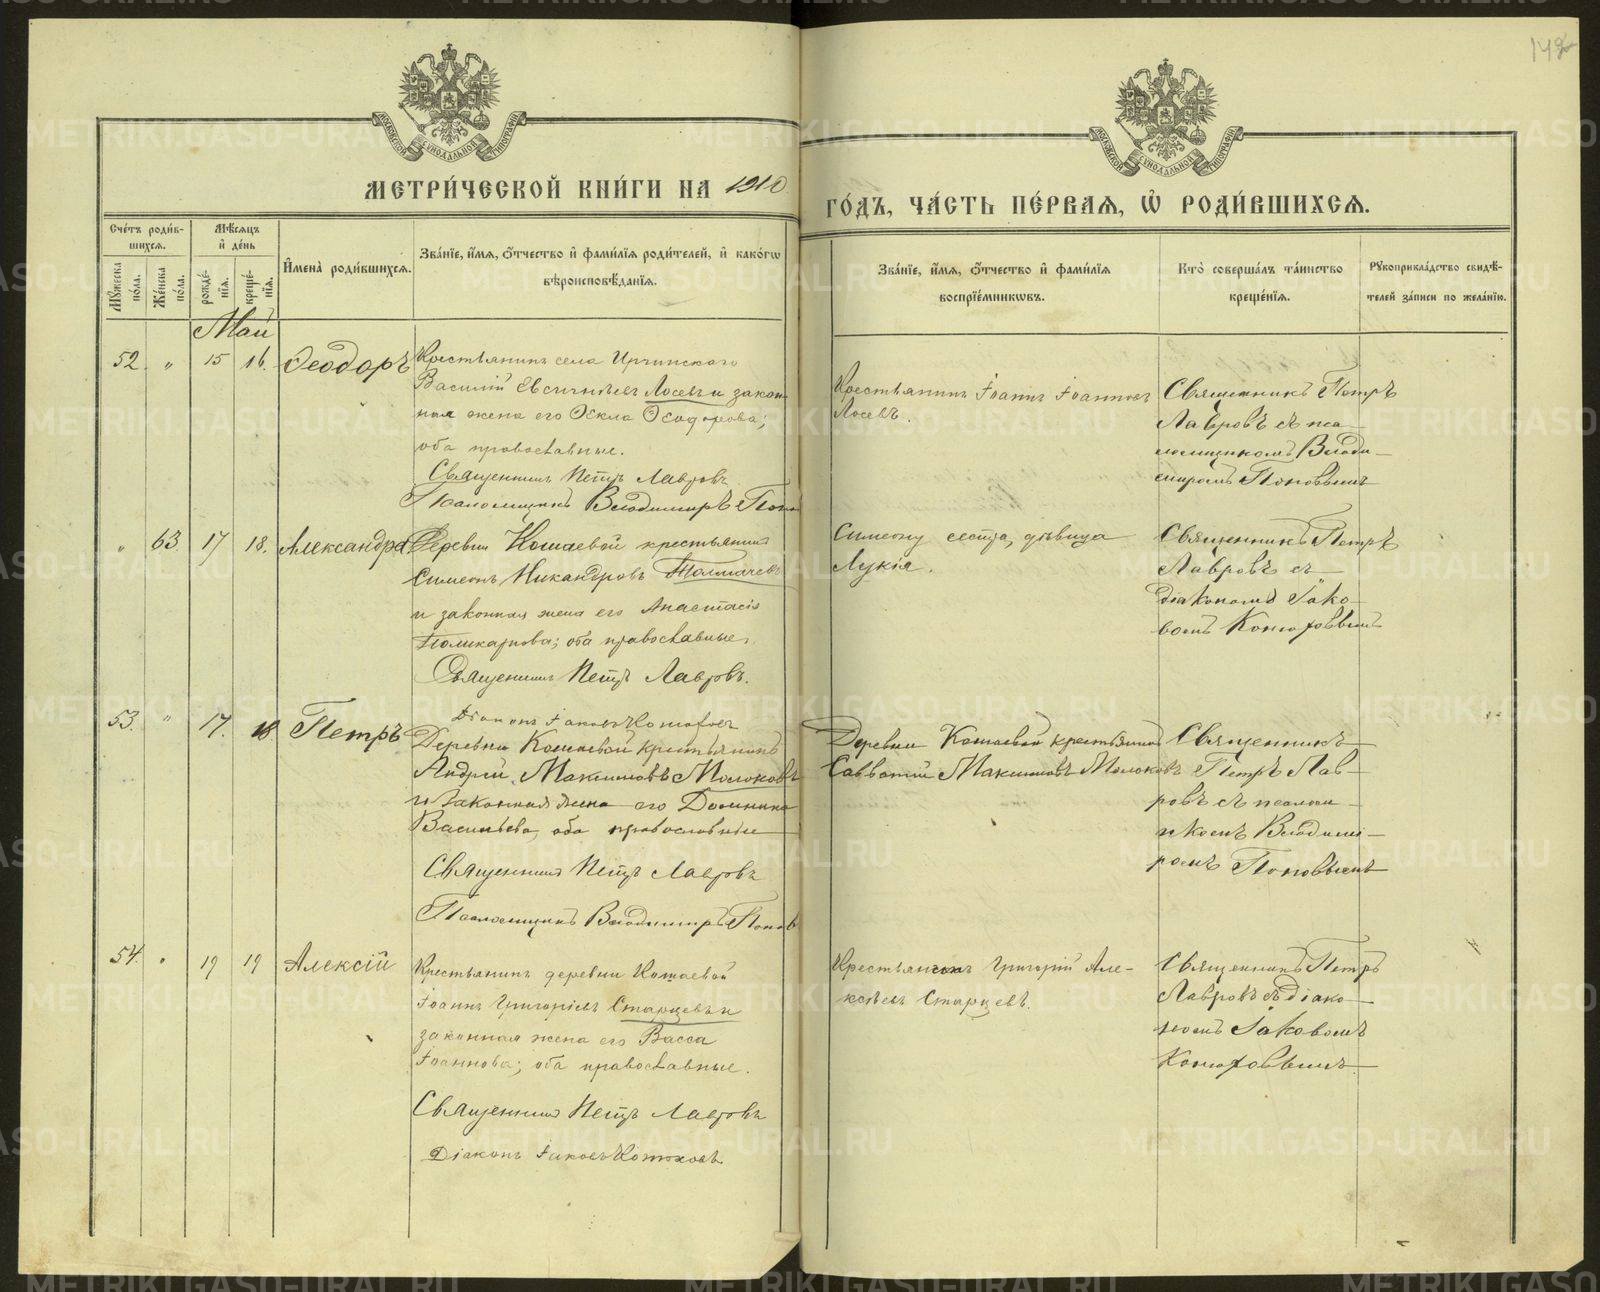 142
МОСКОВСКОЙ СѴНОДАЛЬНОЙ ТИПОГРАФІИ
МОСКОВСКОЙ СѴНОДАЛЬНОЙ ТИПОГРАФІИ
МЕТРИ́ЧЕСКОЙ КНИ́ГИ НА 1910
ГО́ДЪ, ЧА́СТЬ ПЕ́РВАѦ, Ѽ РОДИ́ВШИХСѦ.
Сче́тъ роди́в-
шихсѧ.
Мꙋ́жеска по́ла.
Же́нска по́ла.
Мѣ́сѧцъ
и҆ де́нь
рожде́-
нїѧ.
креще́-
нїѧ.
И҆мена̀ роди́вшихсѧ.
Зва́нїе, и҆́мѧ, ѻ҆́тчество и҆ фами́лїѧ роди́телей, и҆ како́гѡ
вѣроисповѣ́данїѧ.
Зва́нїе, и҆́мѧ, ѻ҆́тчество и҆ фами́лїѧ
воспрїе́мникѡвъ.
Кто̀ соверша́лъ та́инство
креще́нїѧ.
Рꙋкоприкла́дство свидѣ́-
телей за́писи по жела́нїю.
Май
52 " 15 16. Ѳеодоръ
Крестьянинъ села
Василій Лосевъ и закон
ная жена его Ѳекла Ѳеодорова;
оба православные.
Священникъ Петръ Лавровъ
Псаломщикъ Владимиръ Попов
Крестьянинъ Іоаннъ Іоанновъ
Лосевъ.
Священникъ Петръ
Лавровъ съ пса-
ломщикомъ Влади-
миромъ Поповымъ
" 63 17 18. Александра
Деревни Кошаевой крестьянинъ
Симеонъ Никандровъ Толмачевъ
и законная жена его Анастасія
Поликарпова; оба православные.
Священникъ Петръ Лавровъ.
Діаконъ Іаковъ Конюховъ
Симеону сестра, дѣвица
Лукія.
Священникъ Петръ
Лавровъ съ
діакономъ Іако-
вомъ Конюховымъ
53. " 17. 18 Петръ
Деревни Кошаевой крестьянинъ
Андрей Максимовъ Молоковъ
и законная жена его Домника
Васильева, оба православные
Священникъ Петръ Лавровъ
Псаломщикъ Владимиръ Попов
Деревни Кошаевой крестьянинъ
Савватій Максимовъ Молоковъ
Священникъ
Петръ Лав-
ровъ съ псаломщ-
икомъ Владими-
ромъ Поповымъ
54. " 19 19 Алексій
Крестьянинъ деревни Кошаевой
Іоаннъ Григоріевъ Старцевъ и
законная жена его Васса
Іоаннова; оба православные.
Священникъ Петръ Лавровъ
Діаконъ Іаковъ Конюховъ
Крестьянинъ Григорій Але-
ксѣевъ Старцевъ.
Священникъ Петръ
Лавровъ съ діако-
номъ Іаковомъ
Конюховымъ
METRIKI.GASO-URAL.RU